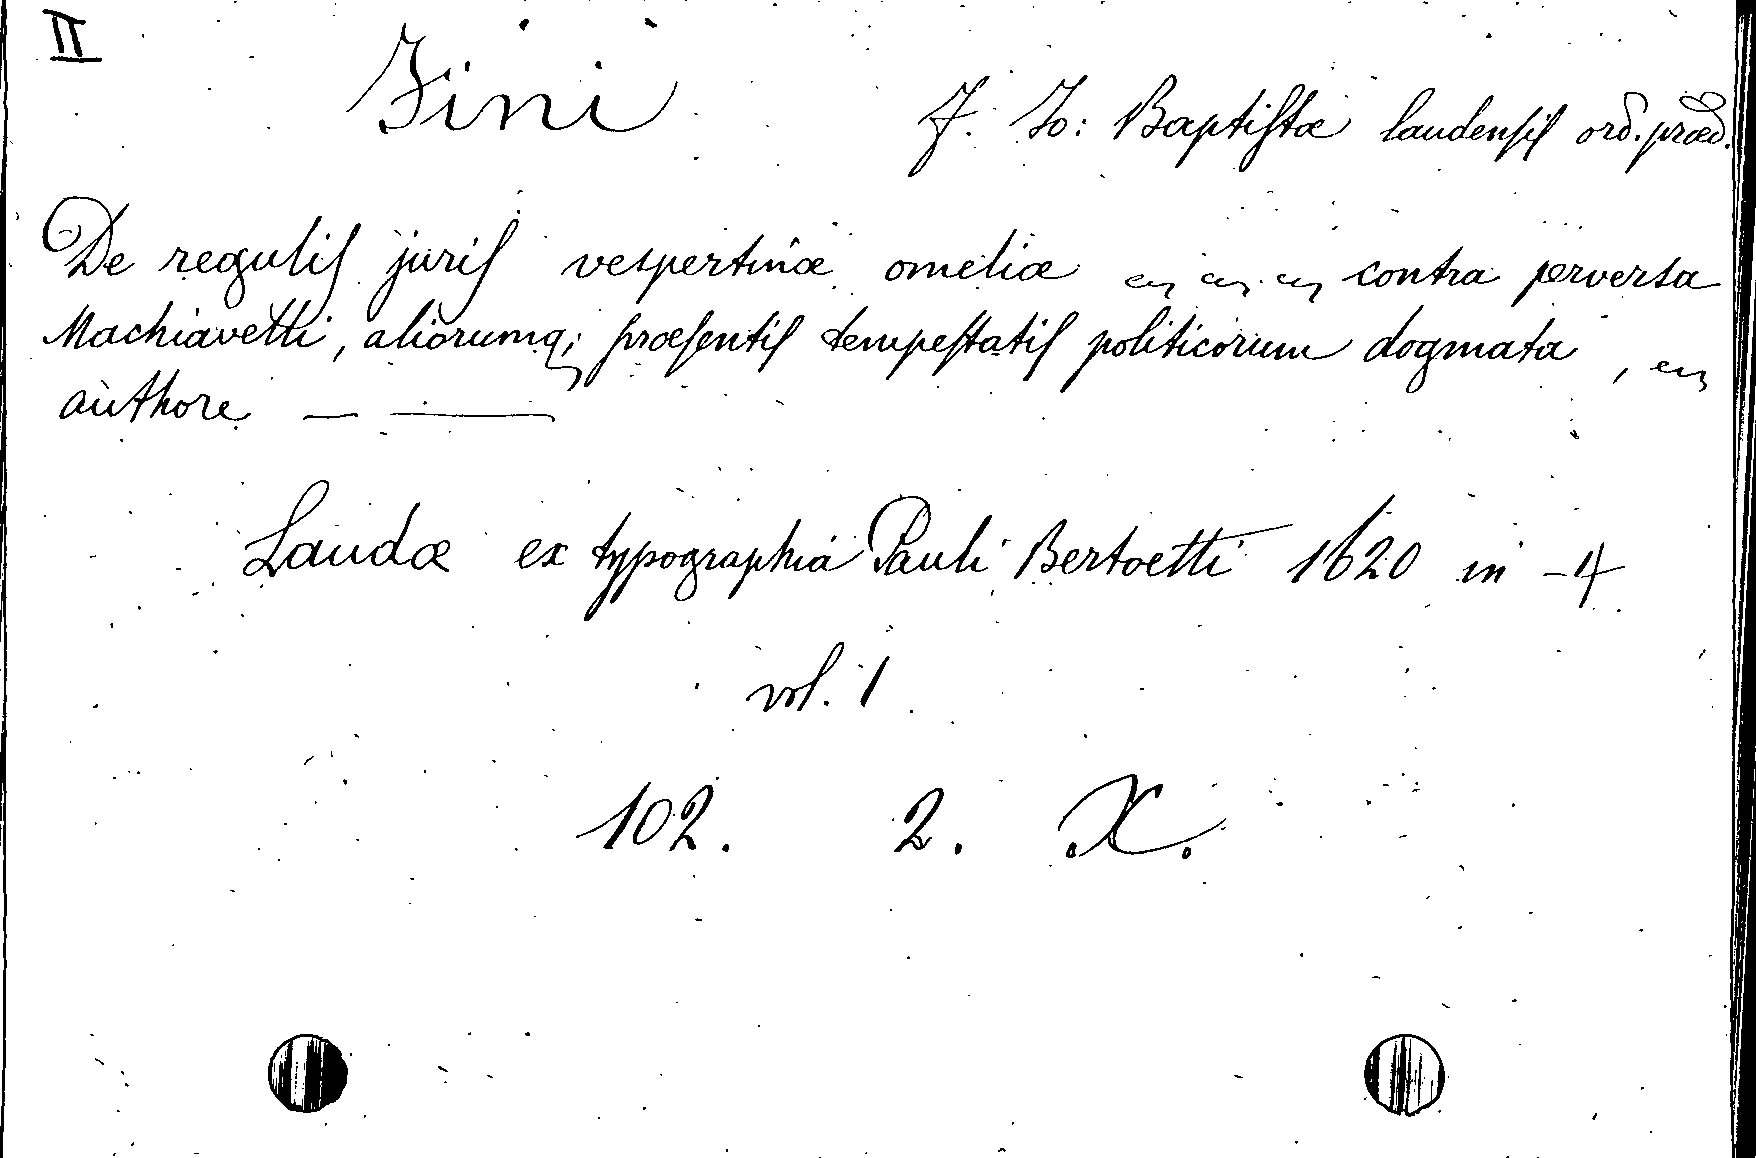 II
Fini F. Io: Baptiſtæ laudenſiſ ord. præd.
De reguliſ juriſ vespertinæ omeliæ contra perversa
Machiavelli, aliorumq; præſentiſ tempeſtatiſ politicorum dogmata,
authore — ——
Laudæ ex typographia Pauli Bertoetti 1620 in -4
vol. 1
102. 2. X.